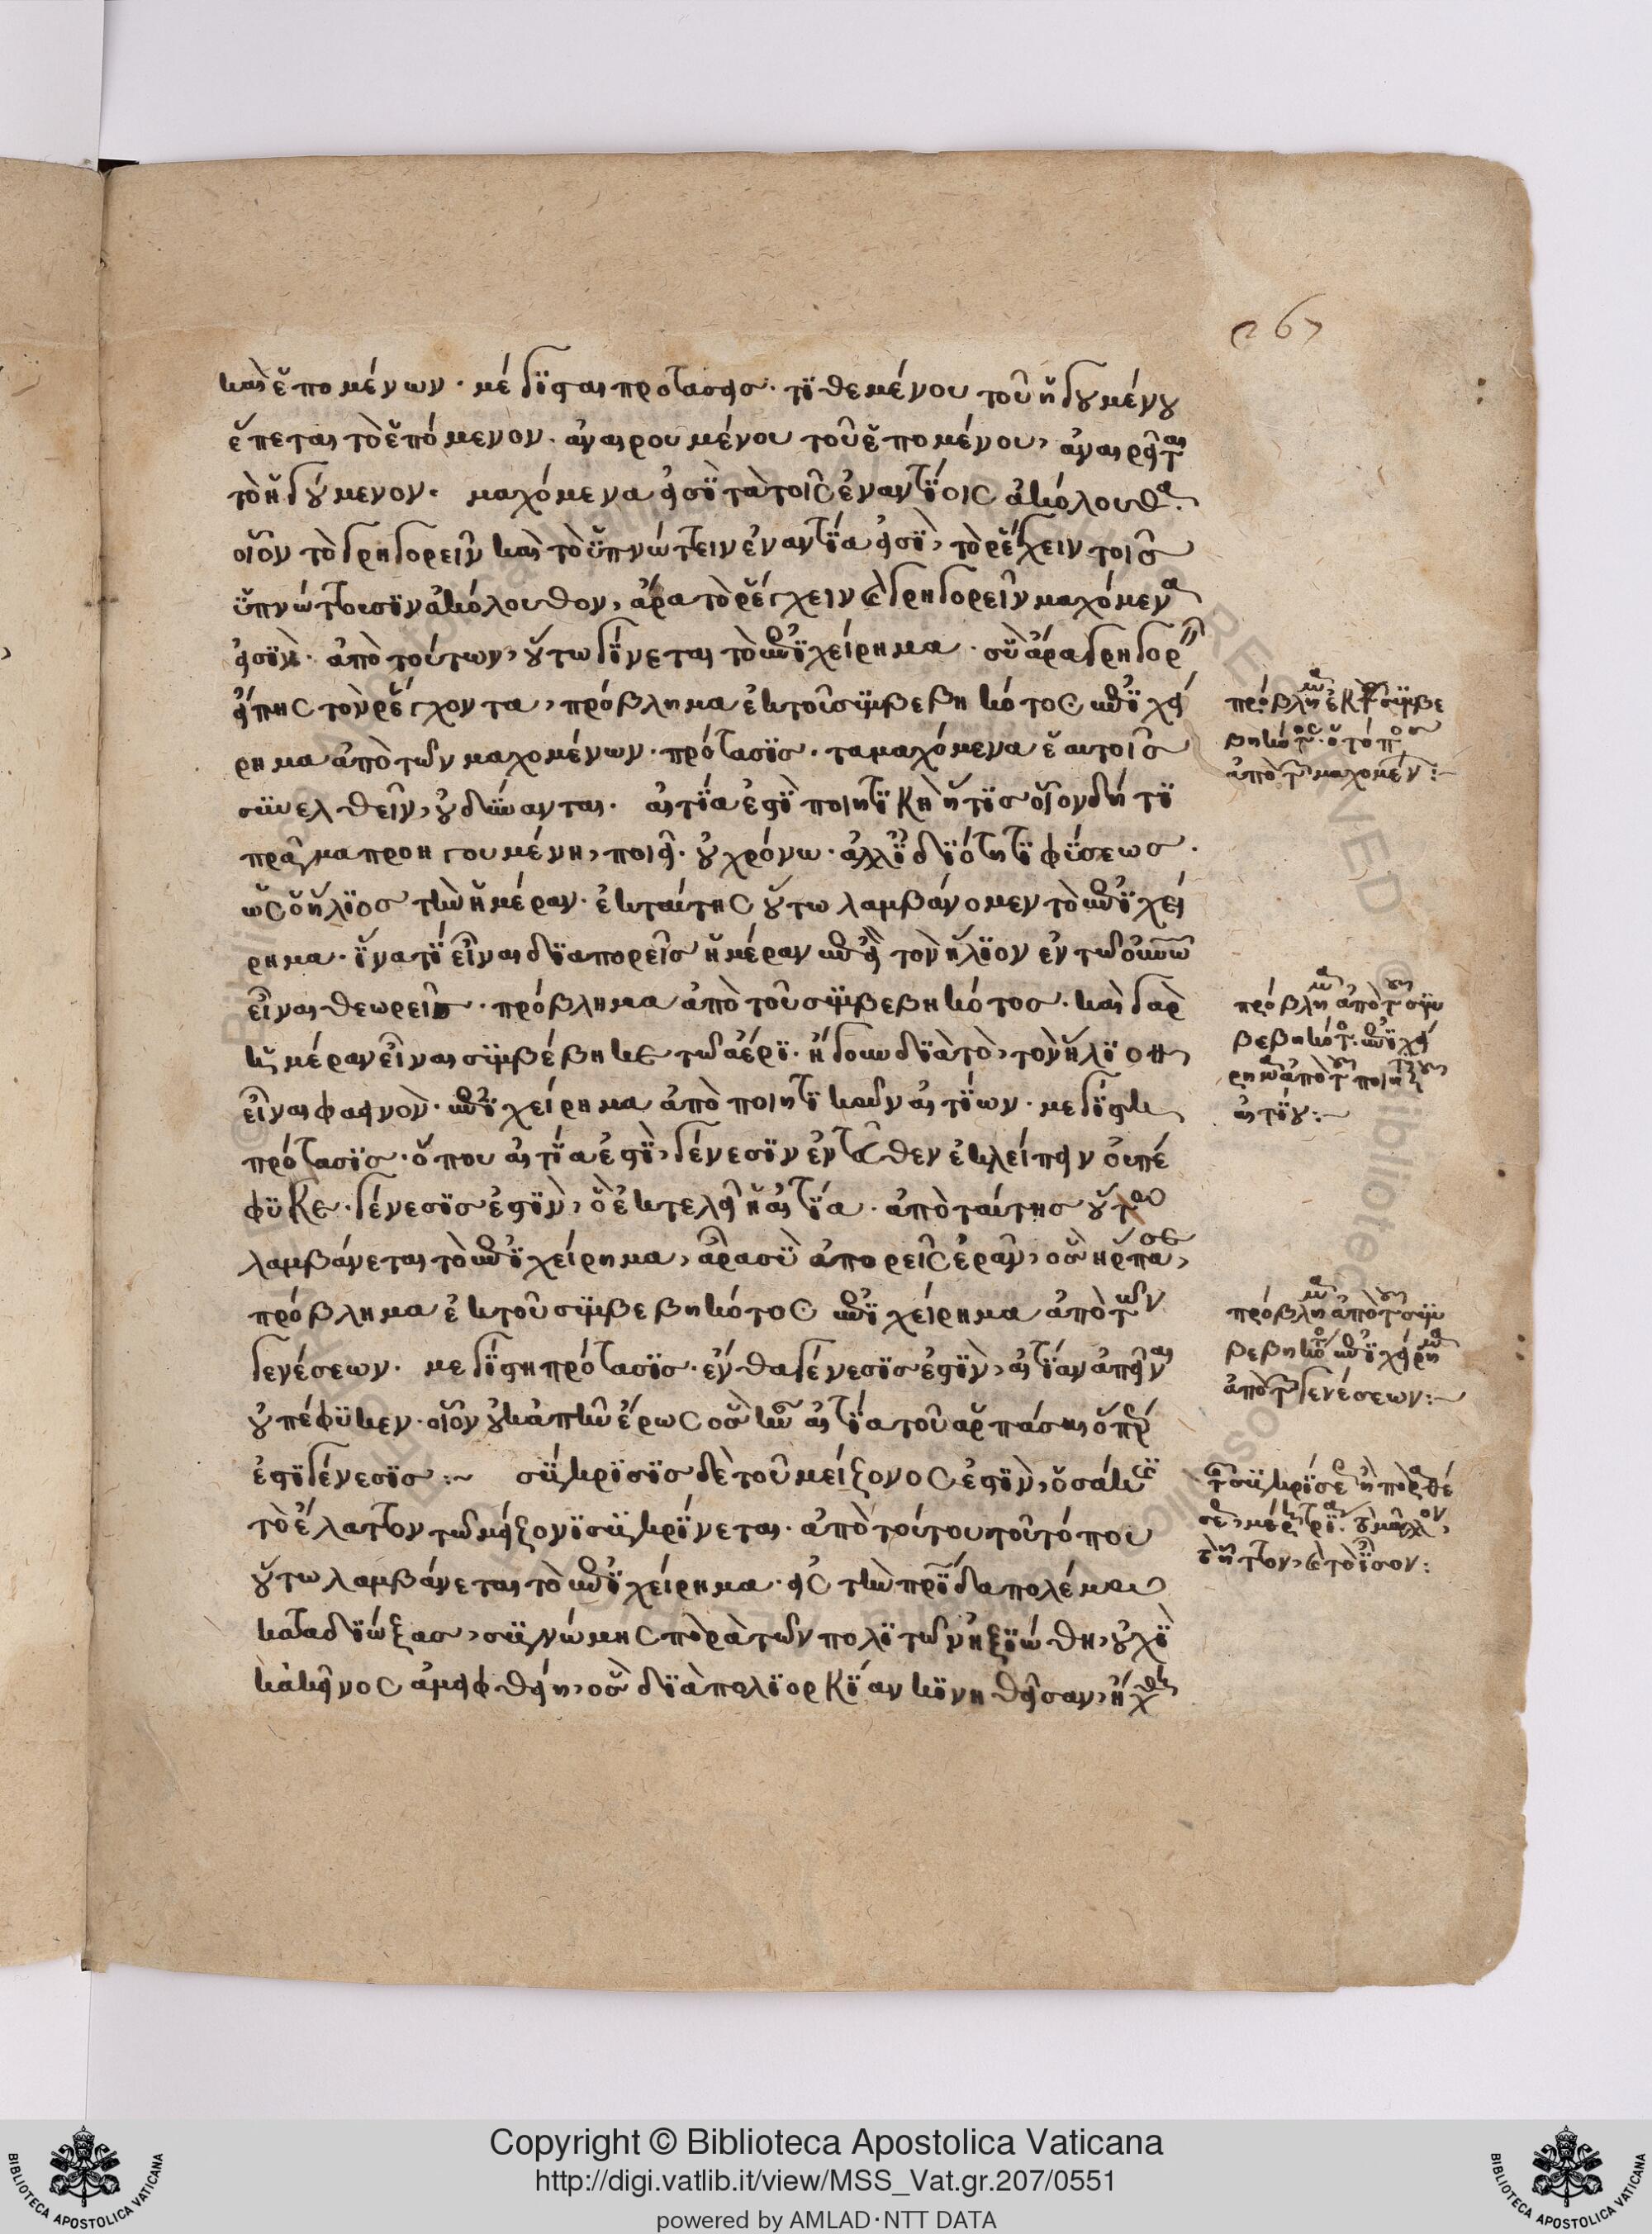 267
καὶ ἑπομένων. μέγισται προτάσεις. τιθεμένου τοῦ ἡγουμένου
ἕπεται τὸ ἑπόμενον. ἀναιρουμένου τοῦ ἑπομένου, ἀναιρεῖται
τὸ ἡγούμενον. μαχόμενα εἰσὶ τὰ τοῖς ἐναντίοις ἀκόλουθα.
οἷον τὸ γρηγορεῖν καὶ τὸ ὑπνώττειν ἐναντία εἰσὶ, τὸ ῥέγχειν τοῖς
ὑπνώττουσιν ἀκόλουθον, ἄρα τὸ ῥέγχειν καὶ γρηγορεῖν μαχόμενα
εἰσὶν. ἀπὸ τούτων, οὕτω γίνεται τὸ ἐπιχείρημα. σὺ ἄρα γρηγορεῖν
εἴπῃς τὸν ῥέγχοντα, πρόβλημα ἐκ τοῦ συμβεβηκότος ἐπιχεί
ρημα ἀπὸ τῶν μαχομένων. πρότασις. τα μαχόμενα ἑαυτοῖς
συνελθεῖν, οὐ δύνανται. αἰτία ἐστὶ ποιητικὴ ἥτις οἷον δή τι
πρᾶγμα προηγουμένη, ποιεῖ. οὐ χρόνω. ἀλλ' ἰδιότητι φύσεως.
ὡς ὁ ἥλιος τὴν ἡμέραν. ἐκ ταύτης οὕτω λαμβάνομεν τὸ ἐπιχεί
ρημα. ἵνα τί εἶναι διαπορεῖς ἡμέραν ἐπεὶ τὸν ἥλιον ἐν τῶ οὐνῶ
εἶναι θεωρεῖς. πρόβλημα ἀπὸ τοῦ συμβεβηκότος. καὶ γαρ
ἡμέραν εἶναι συμβέβηκε τῶ ἀέρι. ἤγουν διὰ τὸ, τὸν ἥλιον
εἶναι φαεινὸν. ἐπιχείρημα ἀπὸ ποιητικῶν αἰτίων. μεγίστη
πρότασις. ὅπου αἰτία ἐστὶ, γένεσιν ἐντεῦθεν ἐκλείπειν οὐ πέ
φυκε. γένεσις ἐστὶν, ὃ ἐκτελεῖ ἡ αἰτία. ἀπὸ ταύτης οὕτω
λαμβάνεται τὸ ἐπιχείρημα, ἆρα σὺ ἀπορεῖς ἐρᾶν, ὃς ἥρπασε,
πρόβλημα ἐκ τοῦ συμβεβηκότος ἐπιχείρημα ἀπὸ τῶν
γενέσεων. μεγίστη πρότασις. ἔνθα γένεσις ἐστὶν, αἰτίαν ἀπεῖναι
οὐ πέφυκεν. οἷον οὐκ ἀπῆν ἔρως ὃς ἦν αἰτία τοῦ ἁρπάσαι ὅπερ
ἐστὶ γένεσις :~ σύγκρισις δὲ τοῦ μείζονος ἐστὶν, ὁσάκις
τὸ ἔλαττον τῶ μείζονι συγκρίνεται. ἀπὸ τούτου τοῦ τόπου
οὕτω λαμβάνεται τὸ ἐπιχείρημα. εἰς τὴν πρίδα πολέμου
καταδιώξας, συγνώμης παρὰ τῶν πολιτῶν ἠξιώθη, οὐχὶ
κἀκεῖνος ἀμειφθείη, ὃς διὰ πολιορκίαν κινηθεῖσαν, ἤχθη
πρόβλημα ἐκ τοῦ συμβε
βηκότος. ὁ τόπος
ἀπὸ τῶν μαχομένων :~
πρόβλημα ἀπὸ τοῦ συμ
βεβηκότος. ἐπιχεί
ρημα ἀπὸ τοῦ ποιητικοῦ
αἰτίου :~
πρόβλημα ἀπὸ τοῦ συμ
βεβηκότος ἐπιχείρημα
ἀπὸ τῶν γενέσεων :~
τὸ ἧττον, καὶ τὸ ἶσον :
Copyright © Biblioteca Apostolica Vaticana
http://digi.vatlib.it/view/MSS_Vat.gr.207/0551
powered by AMLAD·NTT DATA
BIBLIOTECA APOSTOLICA VATICANA
BIBLIOTECA APOSTOLICA VATICANA